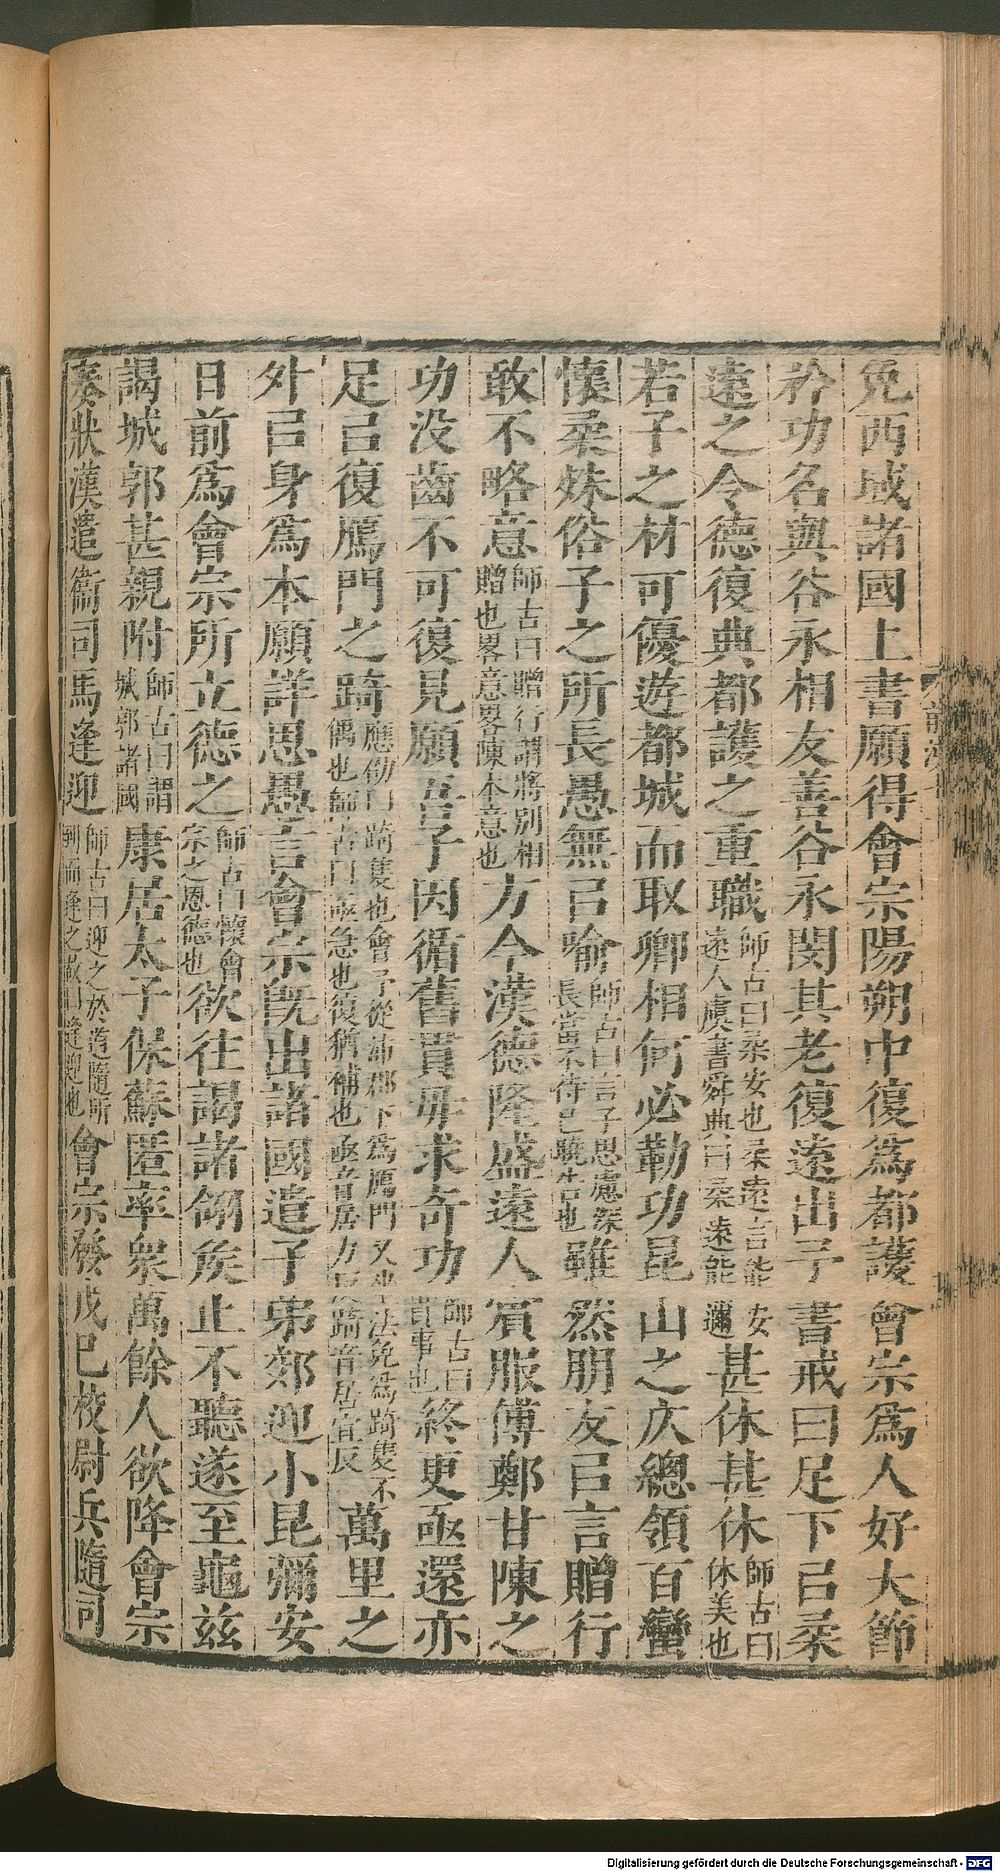 免西域諸國上書願得會宗陽朔中復爲都護會宗爲人好大節
矜功名與谷永相友善谷永閔其老復遠出予書戒曰足下㠯柔
遠之令德復典都護之重職師古曰柔安也柔遠言能安遠人虞書舜典曰柔遠能邇甚休甚休師古曰休美也
若子之材可優遊都城而取卿相何必勒功昆山之仄總領百蠻
懷柔殊俗子之所長愚無㠯喻師古曰言子思慮深長當不待己曉告也雖然朋友㠯言贈行
敢不略意師古曰贈行謂將別相贈也畧意畧陳本意也方今漢德隆盛遠人賓服傅鄭甘陳之
功没齒不可復見願吾子因循舊貫毋求奇功師古曰貫事也終更亟還亦
足㠯復鴈門之踦應劭曰踦隻也會宗從沛郡下爲鴈門又坐法免爲踦隻不偶也師古曰亟急也復猶補也亟音居力反踦音居宜反萬里之
外㠯身爲本願詳思愚言會宗旣出諸國遣子弟郊迎小昆彌安
日前爲會宗所立德之師古曰懷會宗之恩德也欲往謁諸翎侯止不聽遂至龜兹
謁城郭甚親附師古曰謂城郭諸國康居太子保蘇匿率衆萬餘人欲降會宗
奏狀漢遣衞司馬逢迎師古曰迎之於道隨所到而逢之故曰逢迎也會宗發戊巳校尉兵隨司
Digitalisierung gefördert durch die Deutsche Forschungsgemeinschaft - DFG